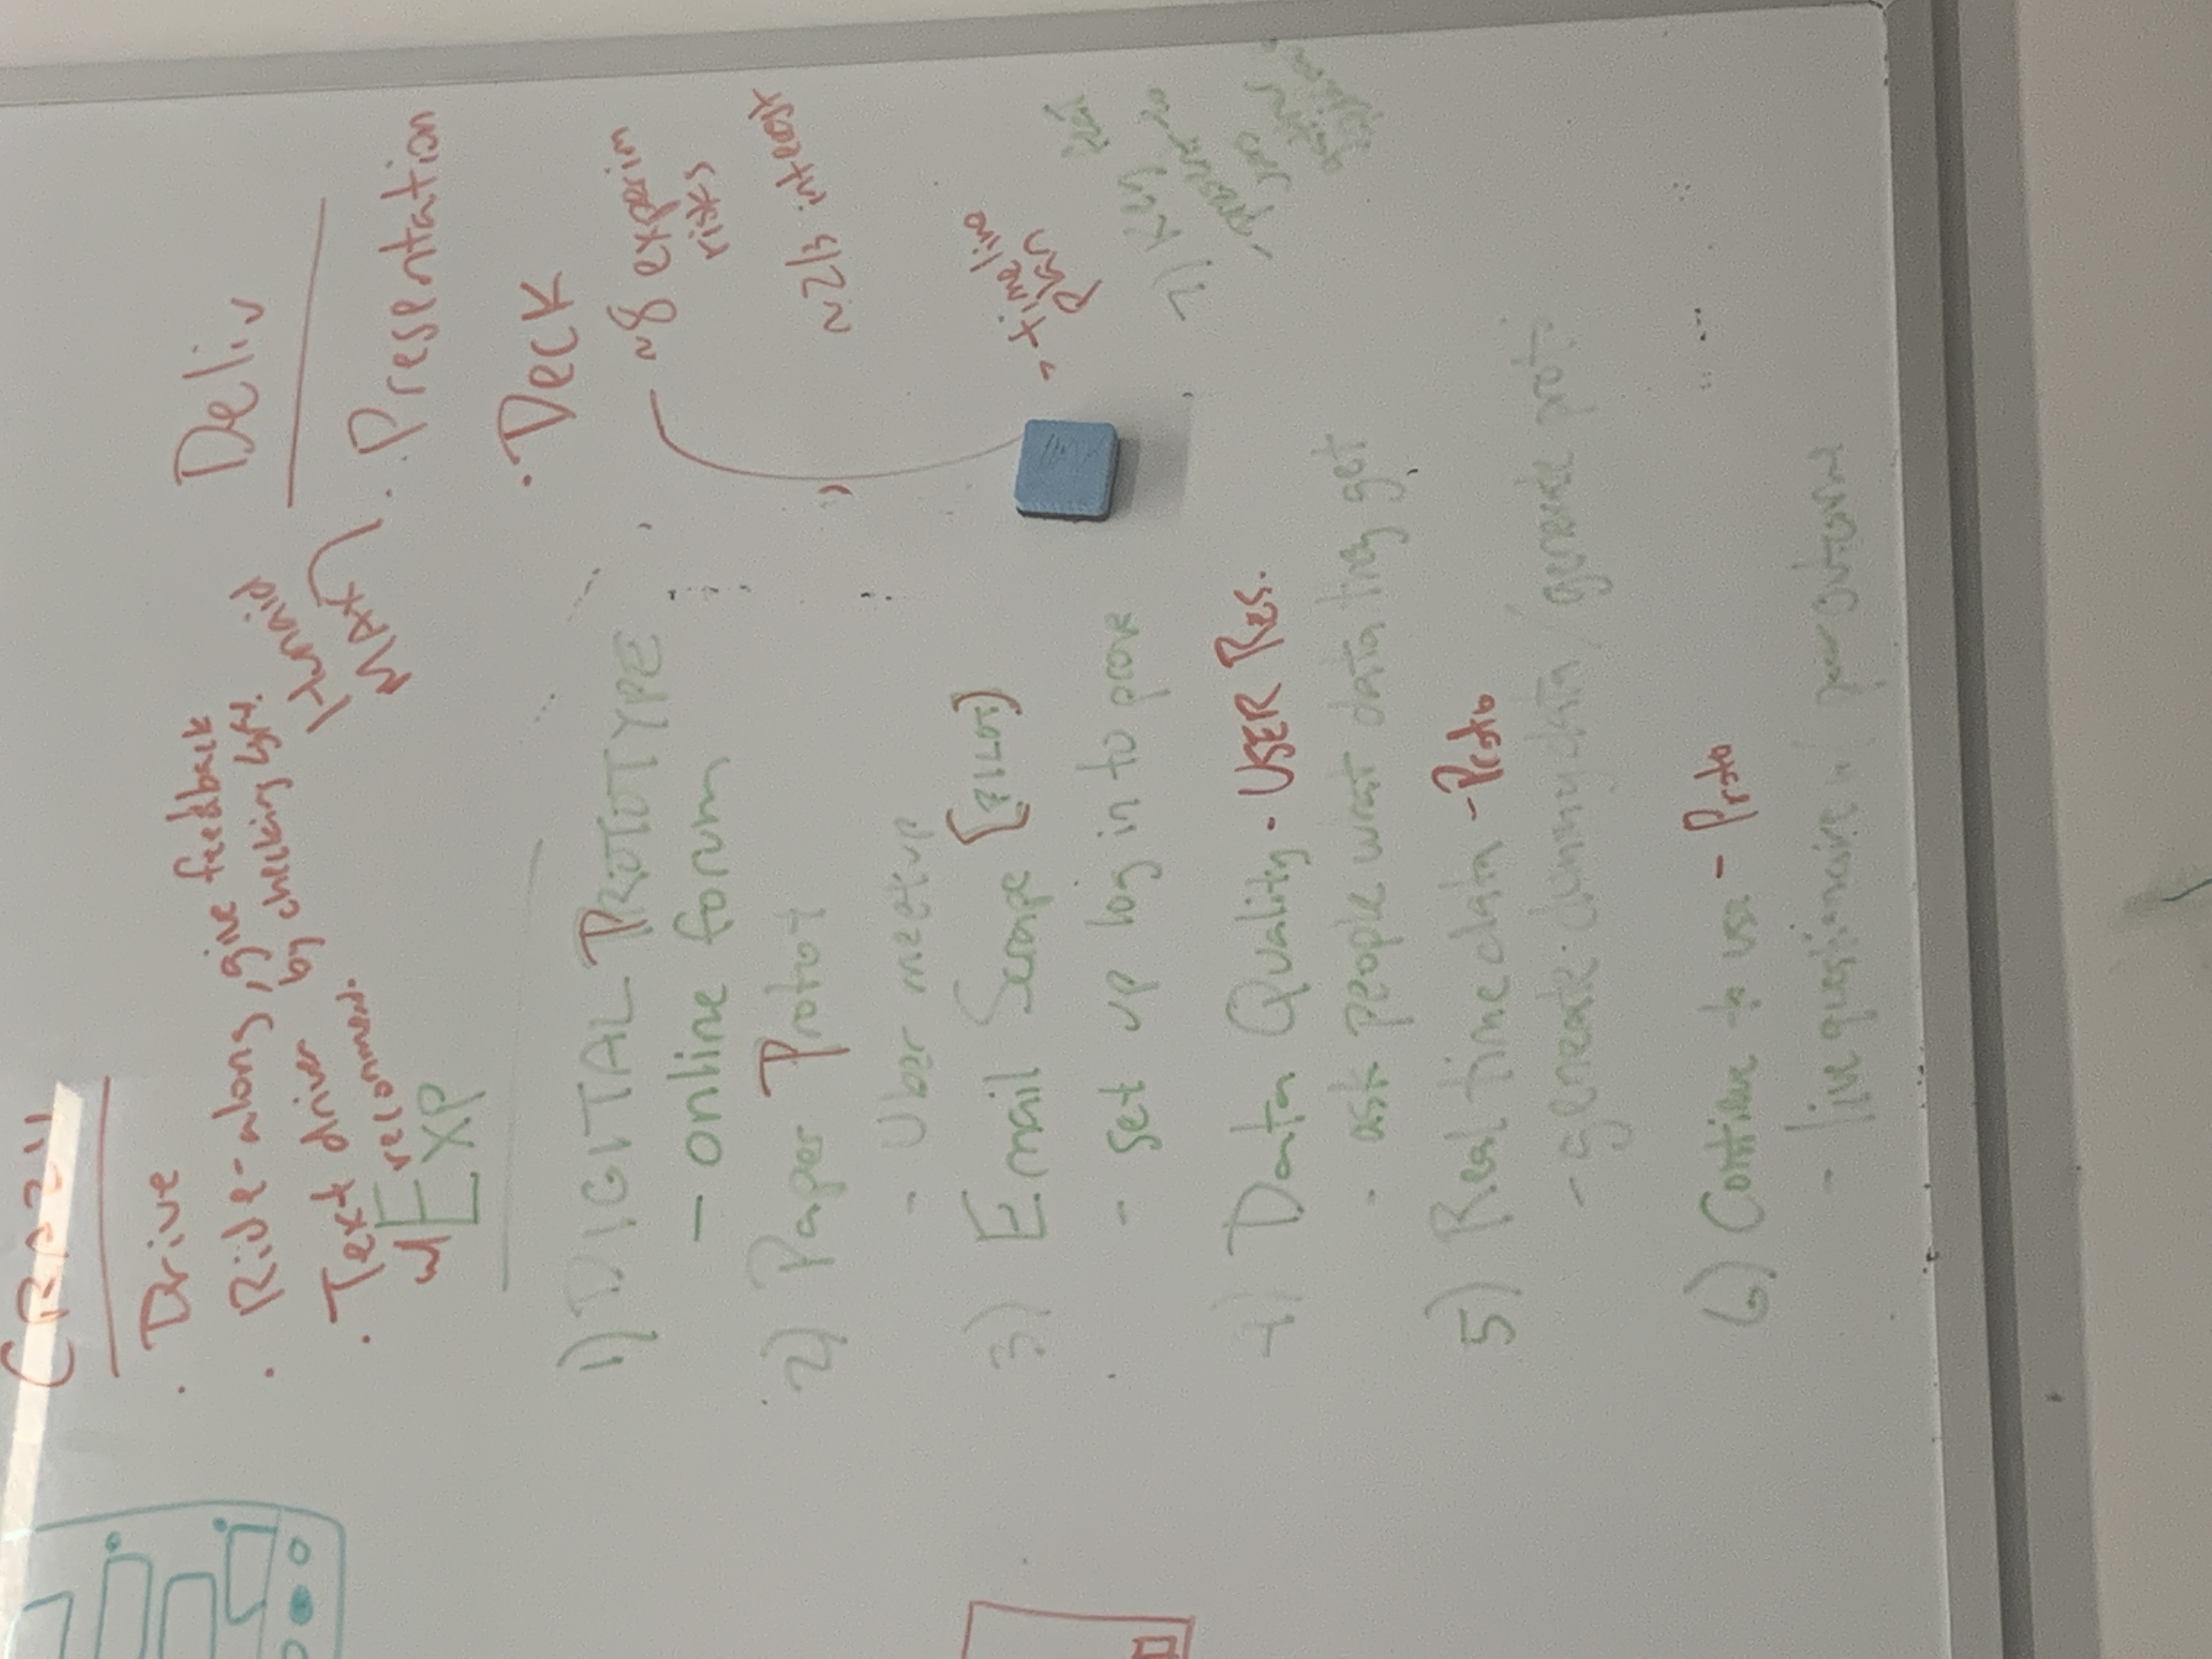 CRAZY
· Drive
· Ride-along, give feedback
by checking
· Text driver
w/ recommend.
Exp
1) DIGITAL PROTOTYPE
- online forum
2) Paper Protot
- Uber meetup
3) Email Scrape [PILOT]
- set up log in to prove
4) Data Quality - USER RES.
- ask people what data they get
5) Real time data - Proto
- generate dummy data / generate prot
6) Continue to use - Proto
- live questionaire w/ poor outcome
Deliv
Hunaid
MAX
· Presentation
· Deck
~8 experim
risks
~2/3 interest
- timeline
plan
7) Key
- present to